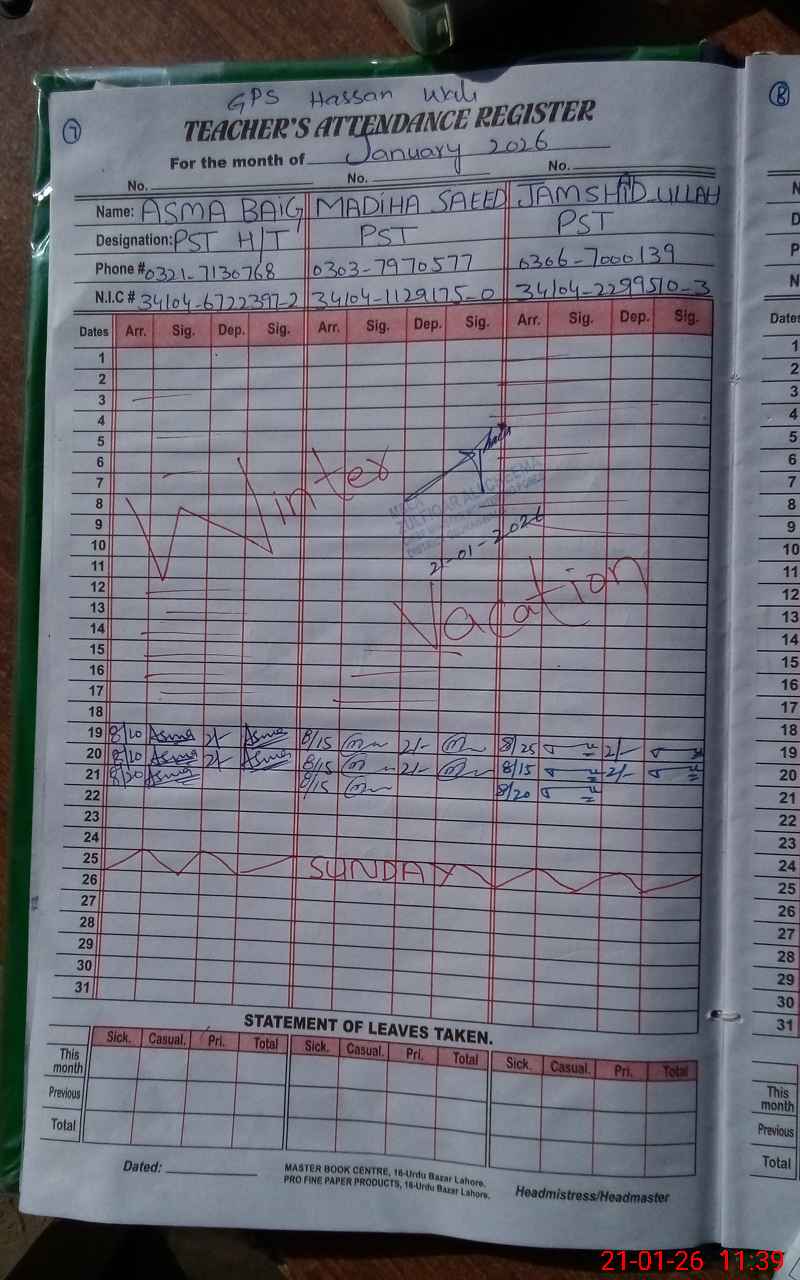 7
GPS Hassan Wali
TEACHER'S ATTENDANCE REGISTER
For the month of January 2026
No. No. No.
Name: ASMA BAIG MADIHA SAEED JAMSHAID ULLAH
Designation: PST H/T PST PST
Phone # 0321-7130768 0303-7970577 0306-7000139
N.I.C # 34104-6722397-2 34104-1129175-0 34104-2299510-3
Dates Arr. Sig. Dep. Sig. Arr. Sig. Dep. Sig. Arr. Sig. Dep. Sig.
1
2
3
4
5
6
7
8
9
10
11
12
13
14
15
16
17
18
Winter
ZULFIQAR ALI CHEEMA
21-01-2026
Vacation
19 8/20 Asma 2/- Asma 8/15 2/- 8/25 2/-
20 8/10 Asma 2/- Asma 8/15 2/- 8/15 2/-
21 8/20 Asma 8/15 8/20
22
23
24
25 SUNDAY
26
27
28
29
30
31
STATEMENT OF LEAVES TAKEN.
Sick. Casual. Pri. Total Sick. Casual. Pri. Total Sick. Casual. Pri. Total
This month
Previous
Total
Dated:
MASTER BOOK CENTRE, 16-Urdu Bazar Lahore.
PRO FINE PAPER PRODUCTS, 16-Urdu Bazar Lahore.
Headmistress/Headmaster
8
N
D
P
N
Dates
1
2
3
4
5
6
7
8
9
10
11
12
13
14
15
16
17
18
19
20
21
22
23
24
25
26
27
28
29
30
31
This month
Previous
Total
21-01-26 11:39